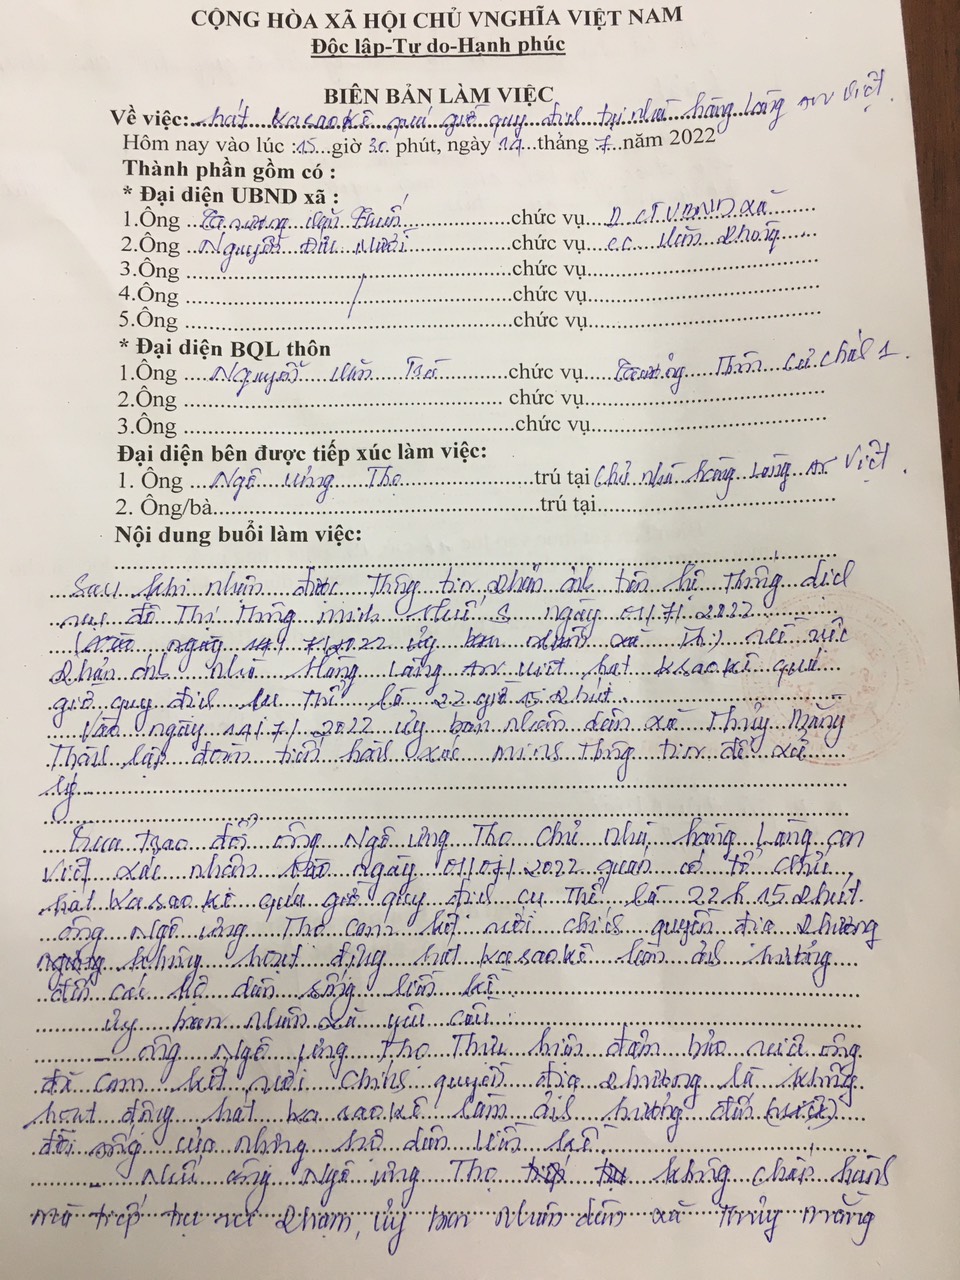 CỘNG HÒA XÃ HỘI CHỦ VNGHĨA VIỆT NAM
Độc lập-Tự do-Hạnh phúc
BIÊN BẢN LÀM VIỆC
Về việc: hát karaokê quá giờ quy định tại nhà hàng Làng An Việt.
Hôm nay vào lúc :15 giờ 30 phút, ngày 14 tháng 7 năm 2022
Thành phần gồm có :
* Đại diện UBND xã :
1.Ông chức vụ P.CTUBND xã
2.Ông Nguyễn chức vụ cc. Văn Phòng
3.Ông chức vụ
4.Ông chức vụ
5.Ông chức vụ
* Đại diện BQL thôn
1.Ông Nguyễn Văn chức vụ Trưởng Thôn Cư Chánh 1.
2.Ông chức vụ
3.Ông chức vụ
Đại diện bên được tiếp xúc làm việc:
1. Ông Ngô ưng Thọ trú tại Chủ nhà hàng Làng An Việt.
2. Ông/bà trú tại
Nội dung buổi làm việc:
Sau khi nhận được thông tin phản ánh trên hệ thống dịch
vụ đô Thị thông minh Huế S ngày 01/7/2022
ngày 14/7/2022 ủy ban nhân xã về việc
phản ánh nhà Hàng Làng An việt hát karaokê quá
giờ quy định cụ thể là 22 giờ 15 phút.
Vào ngày 14/7/2022 ủy ban nhân dân xã Thủy Bằng
Thành lập đoàn tiến hành xác minh thông tin để xử
lý
Qua trao đổi ông Ngô ưng Thọ chủ nhà hàng Làng an
Việt xác nhận vào ngày 01/07/2022 quán có tổ chức
hát karaokê quá giờ quy định cụ thể là 22h 15 phút.
ông Ngô ưng Thọ cam kết với chính quyền địa phương
không hoạt động hát karaokê làm ảnh hưởng
đến các hộ dân sống liền kề.
Ủy ban nhân xã yêu cầu:
- ông Ngô ưng Thọ thực hiện đảm bảo việc ông
đã cam kết với chính quyền địa phương là không
hoạt động hát karaokê làm ảnh hưởng đến
đời sống của những hộ dân liền kề.
- Nếu ông Ngô ưng Thọ không chấp hành
mà tiếp tục vi phạm, ủy ban nhân dân xã Thủy Bằng